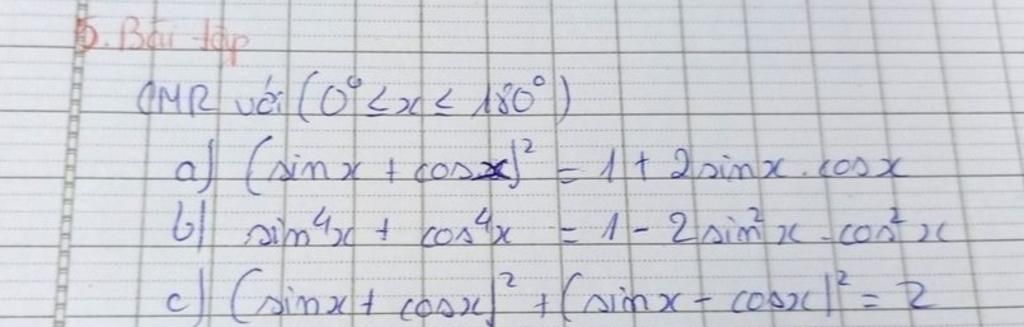 5. Bài tập
CMR với (0° ≤ x ≤ 180°)
a) (sinx + cosx)² = 1 + 2sinx.cosx
b) sin⁴x + cos⁴x = 1 - 2sin²x.cos²x
c) (sinx + cosx)² + (sinx - cosx)² = 2